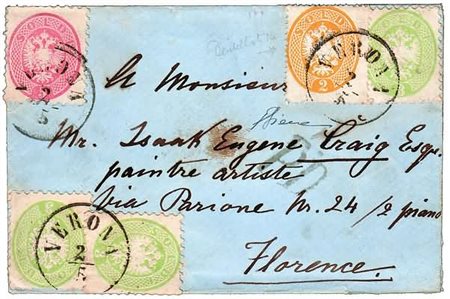 VERONA
VERONA
2
A Monsieur
Mr. Isaak Eugene Craig Esqr.
peintre artiste
Via Parione Nr. 24/2 piano
Florence.
VERONA
2